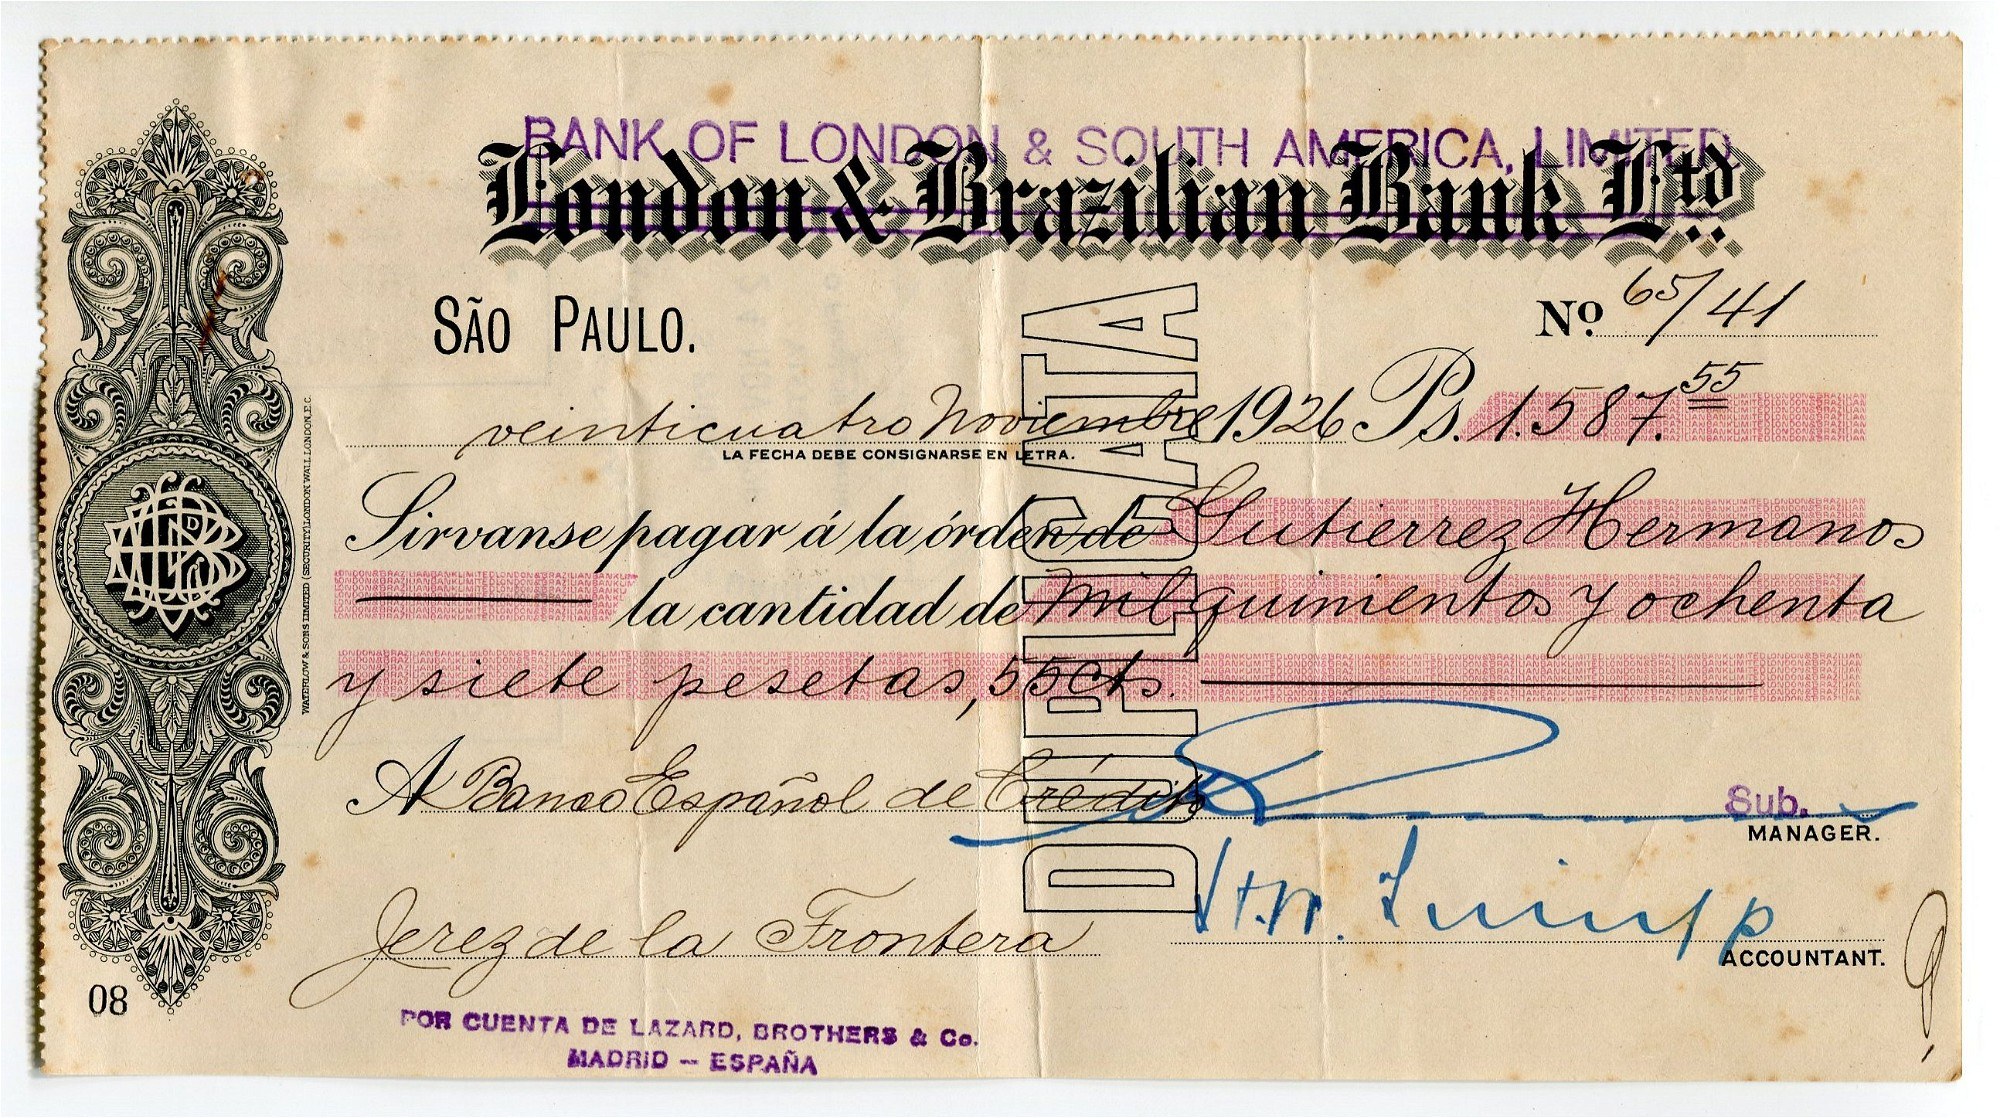 BANK OF LONDON & SOUTH AMERICA, LIMITED
London & Brazilian Bank Ltd.
SÃO PAULO.
No. 65/41
veinticuatro Noviembre 1926 Ps. 1.587.55
LA FECHA DEBE CONSIGNARSE EN LETRA.
Sirvanse pagar á la órden de Gutierrez Hermanos
la cantidad de Mil quinientos y ochenta
y siete pesetas, 55 cts.
A Banco Español de Crédito
Sub.
MANAGER.
Jerez de la Frontera
ACCOUNTANT.
08
POR CUENTA DE LAZARD, BROTHERS & Co.
MADRID - ESPAÑA
DUPLICATA
WATERLOW & SONS LIMITED (SECURITY) LONDON WALL LONDON, E.C.